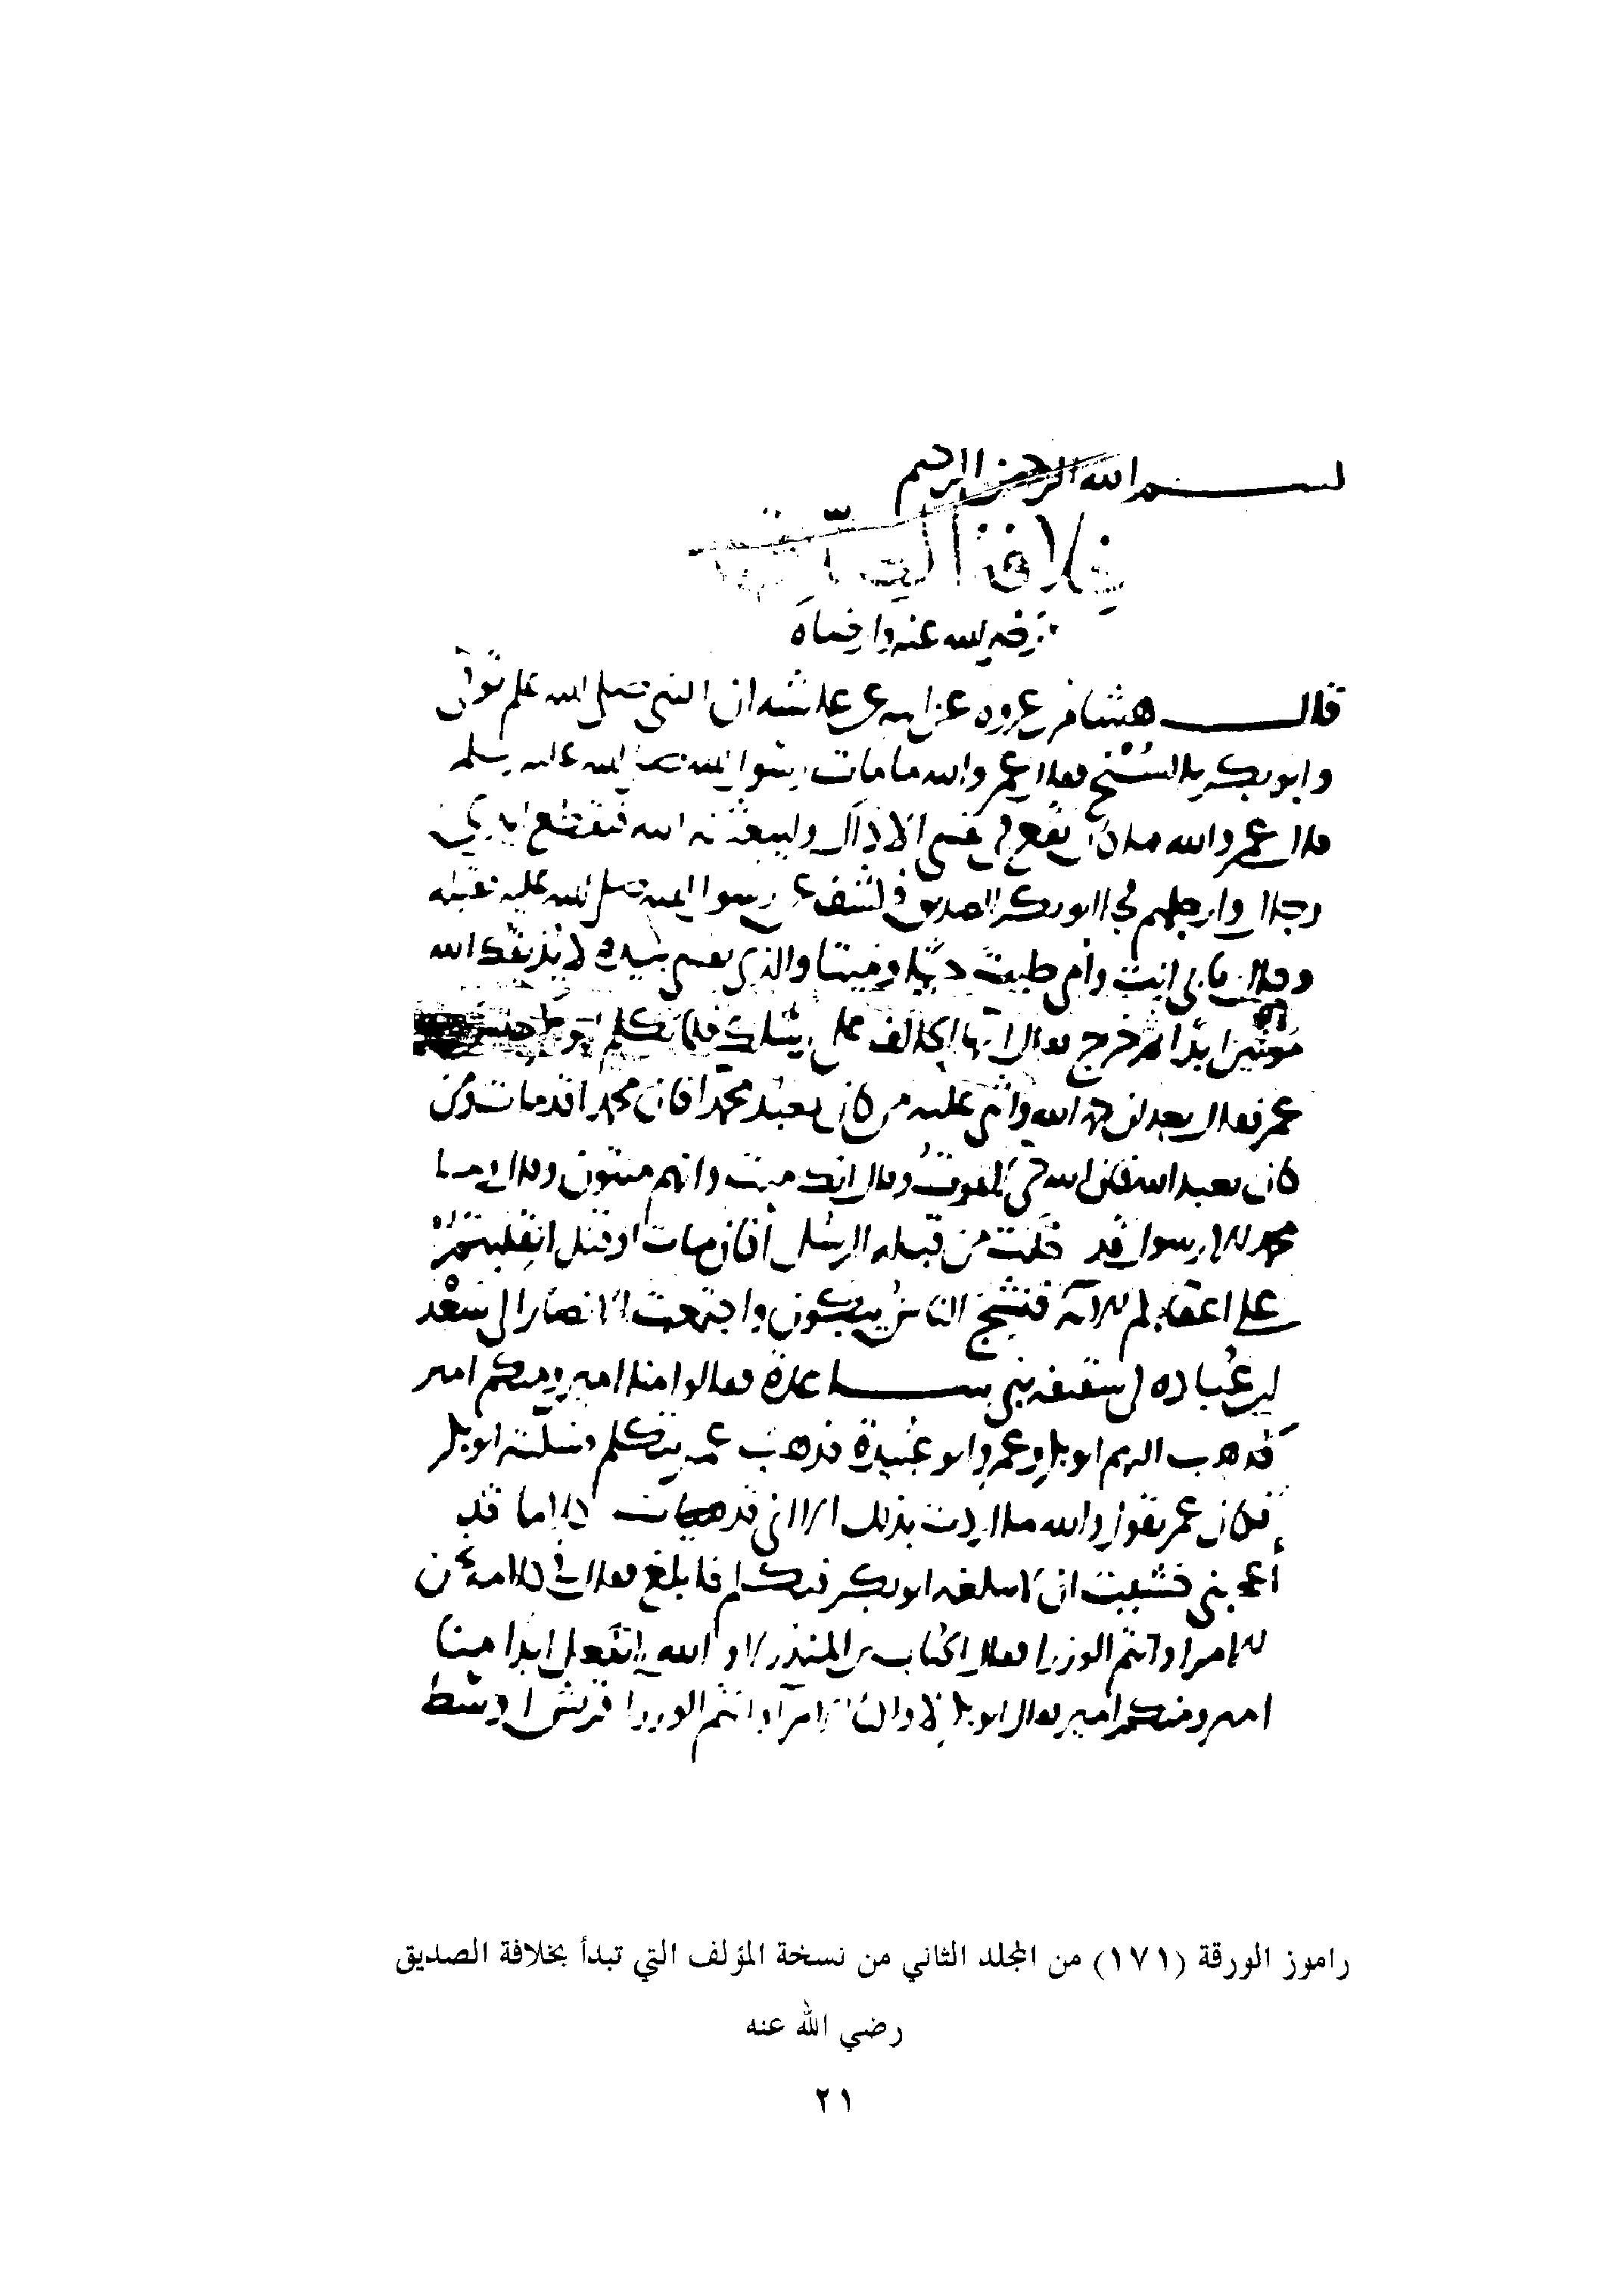 بسم الله الرحمن الرحيم
خلافة الصديق
رضي الله عنه وارضاه
قال هشام بن عروة عن ابيه عن عائشة ان النبي صلى الله عليه توفي
وابو بكر بالسُّنْح فقال عمر والله ما مات رسول الله صلى الله عليه وسلم
قال عمر والله ما كان يقع في نفسي الا ذاك وليبعثنه الله فيقطع ايدي
رجال وارجلهم فجا ابو بكر الصديق فكشف عن رسول الله صلى الله عليه فقبله
وقال بابي انت وامي طبت حيّا وميتا والذي نفسي بيده لا يذيقك الله
موتتين ابدًا ثم خرج فقال ايها الحالف على رسلك فلما تكلم ابو بكر جلس
عمر فقال بعد ان حمد الله واثنى عليه من كان يعبد محمدا فان محمدا قد مات ومن
كان يعبد الله فان الله حي لا يموتُ وقال انك ميت وانهم ميتون وقال وما
محمد الا رسول قد خَلَت من قبله الرسُل أفان مات او قتل انقلبتمْ
على اعقابكم الاية فنشج الناسُ يبكون واجتمعت الانصار الى سَعْد
بن عُبادة في سقيفة بني ساعدة فقالوا منا امير ومنكم امير
فذهب اليهم ابو بكر وعمر وابو عُبيدة فذهب عمر يتكلم فسكّته ابو بكر
فكان عمر يقول والله ما اردت بذلك الا اني قد هيات كلاما قد
أعجبني خشيت ان لا يبلغه ابو بكر فتكلم فابلغ فقال في كلامه نحن
الامرا وانتم الوزرا فقال الحُباب بن المنذر لا والله لا نفعل ابدا منا
امير ومنكم امير فقال ابو بكر لا ولكنّا الامرآ وانتم الوزرا قريش اوسط
راموز الورقة (١٧١) من المجلد الثاني من نسخة المؤلف التي تبدأ بخلافة الصديق
رضي الله عنه
٢١